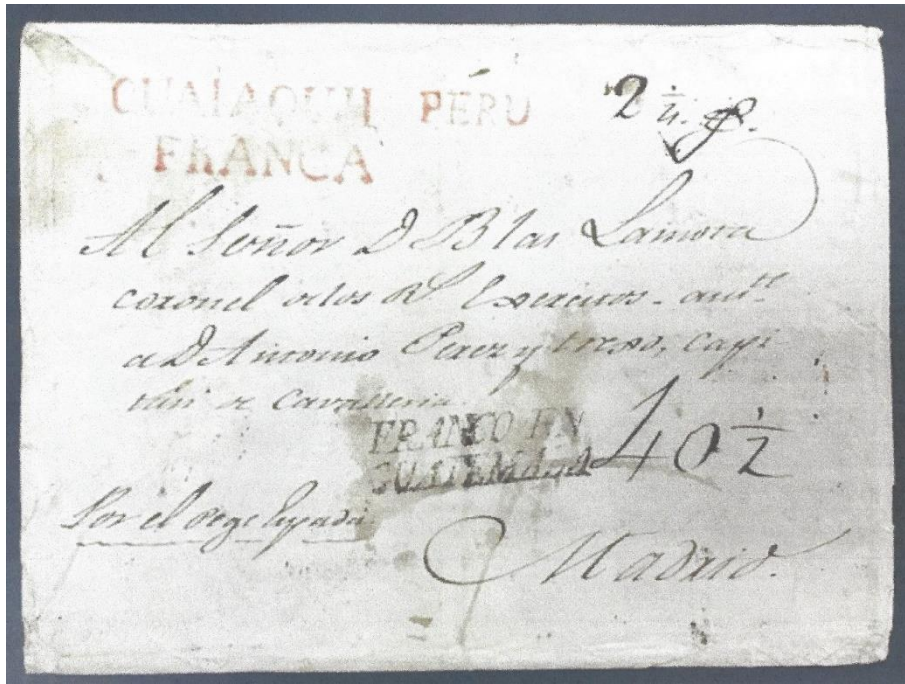 GUAIAQUIL PÉRU 2 1/4.
FRANCA
Al Señor D Blas Lamora
coronel delos Rs Exercitos
a D Antonio Perez y capi
tan de Cavalleria
FRANCO EN
GUATEMALA 40 1/2
Por el
Madrid.